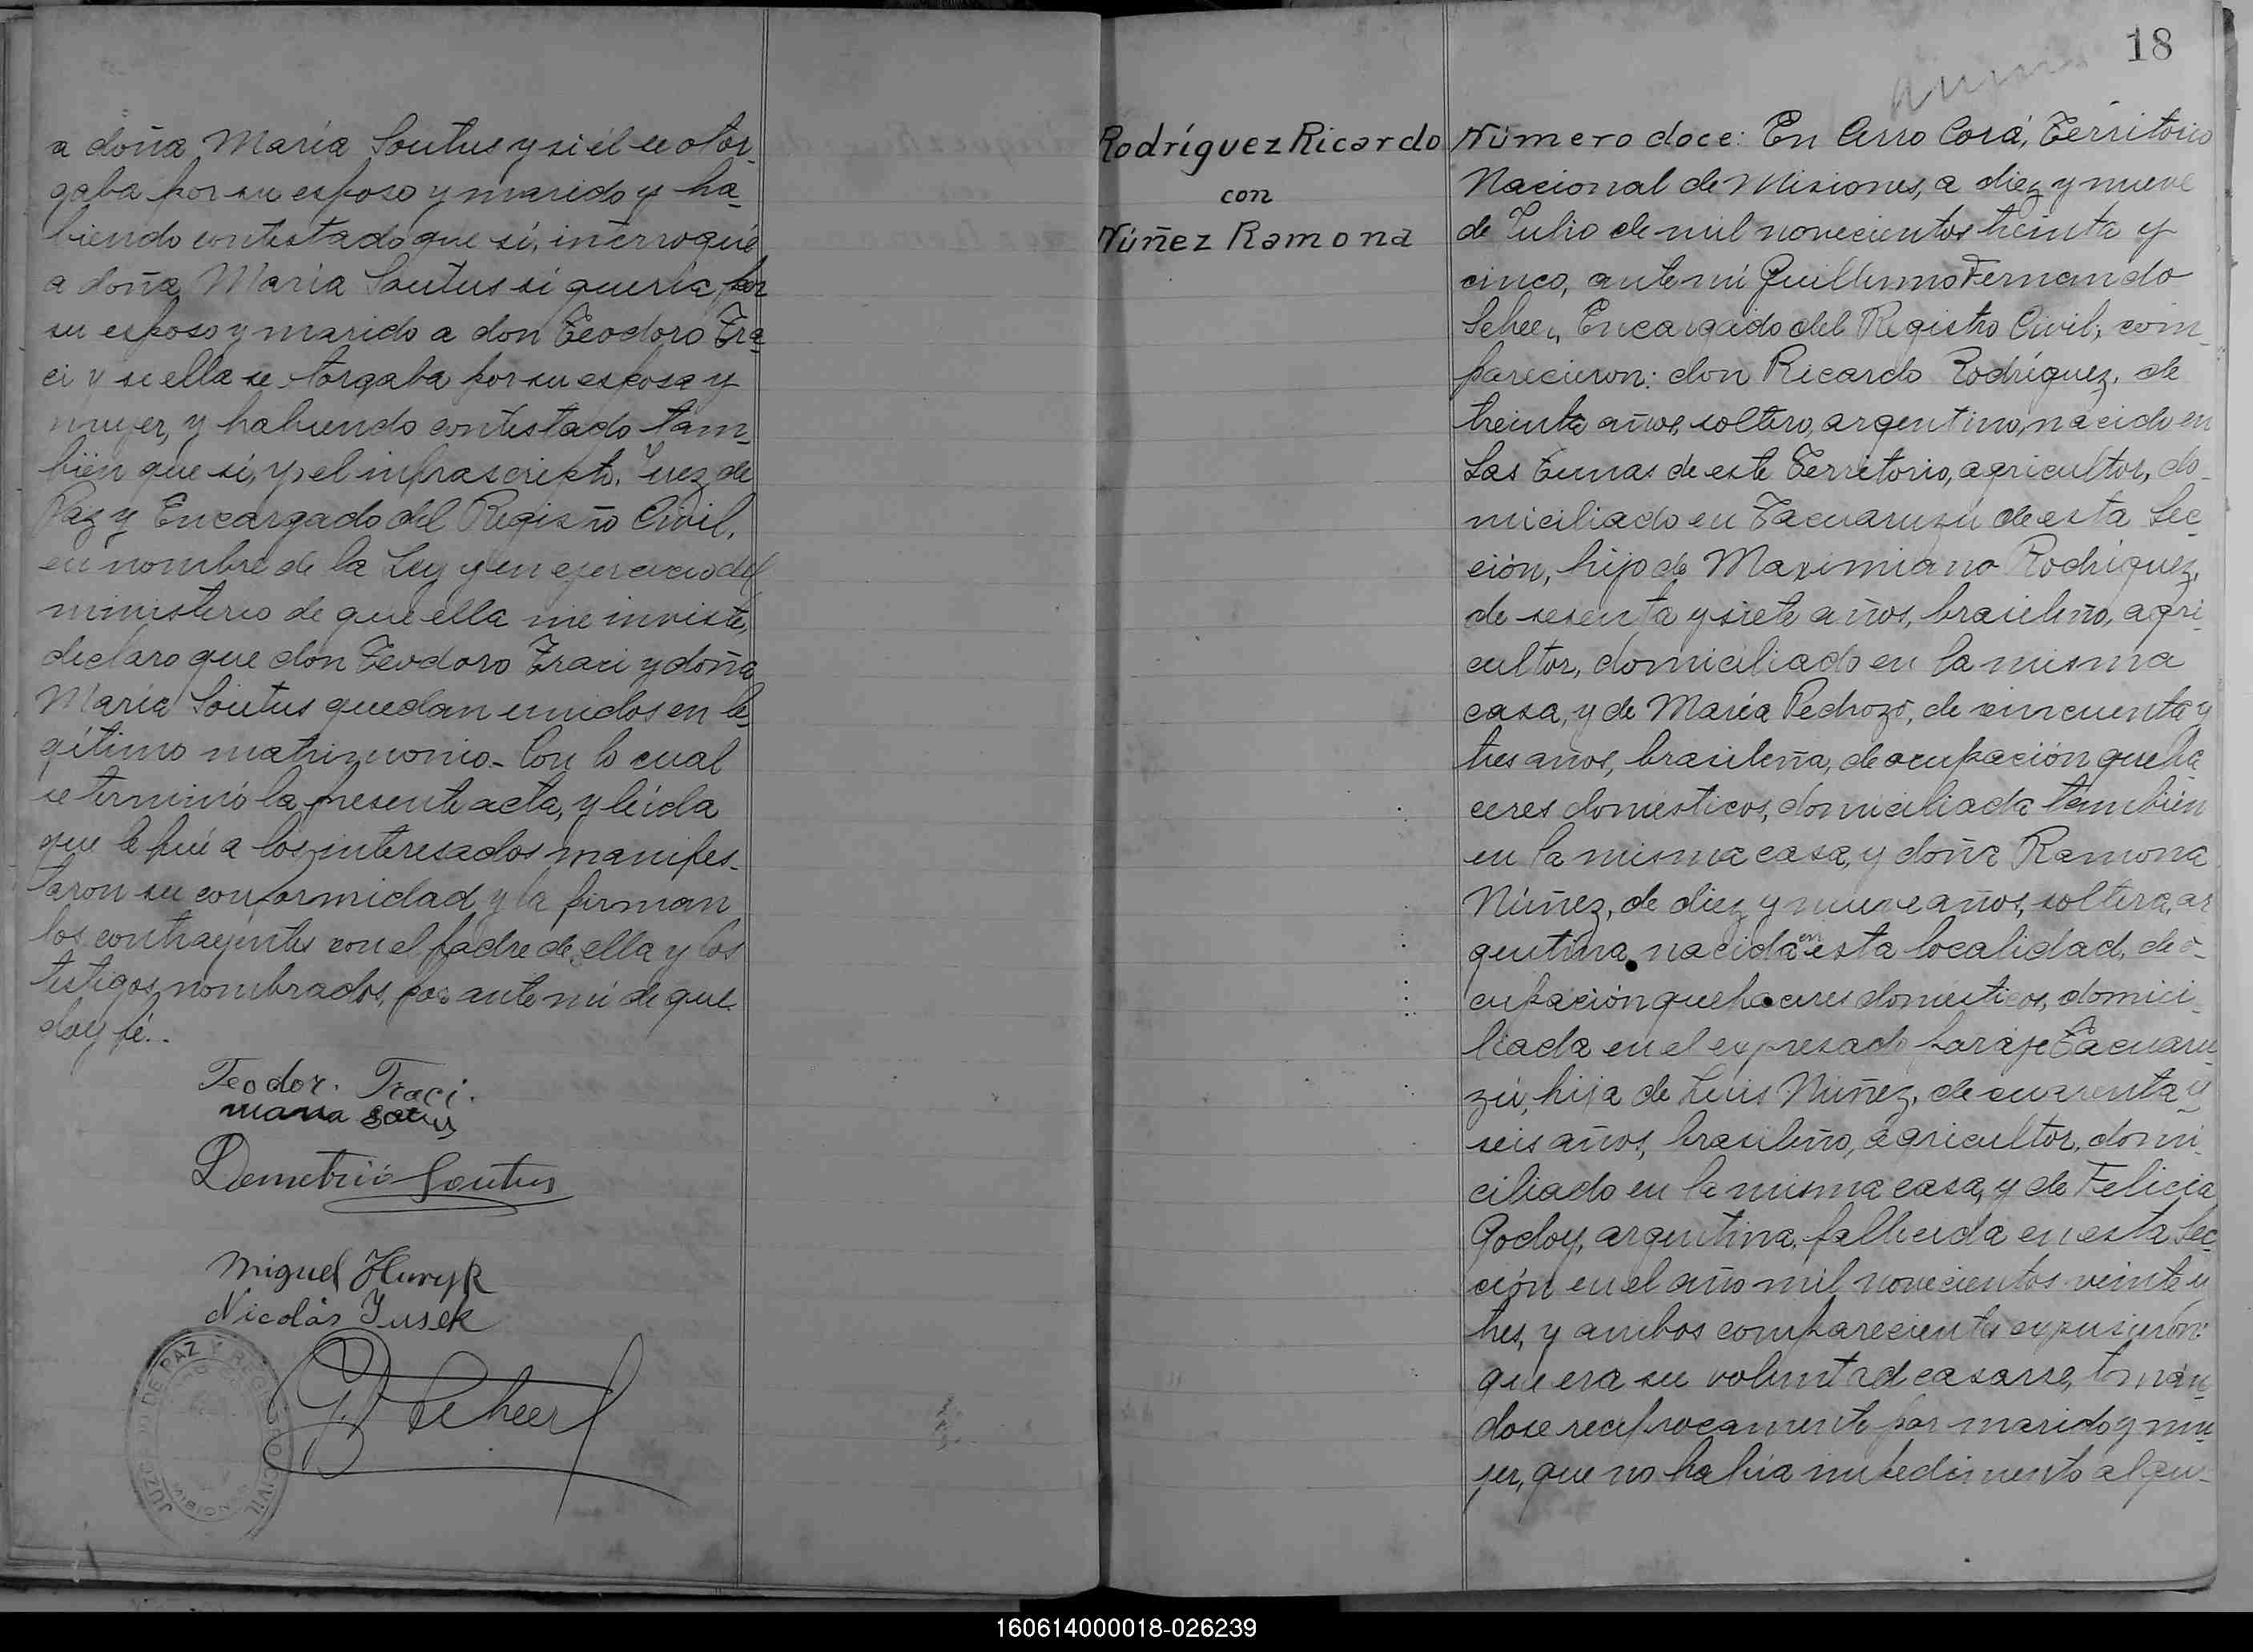 a doña María Soutus y si él se otor-
gaba por su esposo y marido y ha-
biendo contestado que sí, interrogué
a doña María Soutus si quería por
su esposo y marido a don Teodoro Tra-
ci y si ella se otorgaba por su esposa y
mujer, y habiendo contestado tam-
bién que sí, y el infrascripto, Juez de
Paz y Encargado del Registro Civil,
en nombre de la Ley y en ejercicio del
ministerio de que ella me inviste,
declaro que don Teodoro Traci y doña
María Soutus quedan unidos en le-
gítimo matrimonio.- Con lo cual
se terminó la presente acta, y leída
que le fué a los interesados manifes-
taron su conformidad y la firman
los contrayentes con el padre de ella y los
testigos nombrados, por ante mí de que
doy fé..
Teodor. Traci.
maria
Demetrio Soutus
Miguel
Nicolás Jusek
G F Scheer
JUZ DE PAZ Y REGISTRO CIVIL
18
Rodríguez Ricardo
con
Núñez Ramona
Número doce: En Cerro Corá, Territorio
Nacional de Misiones, a diez y nueve
de Julio de mil novecientos treinta y
cinco, ante mí Guillermo Fernando
Scheer, Encargado del Registro Civil, com-
parecieron: don Ricardo Rodríguez, de
treinta años, soltero, argentino, nacido en
Las Tunas de este Territorio, agricultor, do-
miciliado en Tacuaruzú de esta Sec-
ción, hijo de Maximiano Rodríguez,
de sesenta y siete años, brasileño, agri-
cultor, domiciliado en la misma
casa, y de María Pedrozo, de cincuenta y
tres años, brasileña, de ocupación queha-
ceres domésticos, domiciliada también
en la misma casa, y doña Ramona
Núñez, de diez y nueve años, soltera, ar-
gentina, nacida en esta localidad, de o-
cupación quehaceres domésticos, domici-
liada en el expresado paraje Tacuaru-
zú, hija de Luis Núñez, de cuarenta y
seis años, brasileño, agricultor, domi-
ciliado en la misma casa, y de Felicia
Godoy, argentina, fallecida en esta Sec-
ción en el año mil novecientos veinte y
tres, y ambos comparecientes expusieron:
que era su voluntad casarse, tomán-
dose recíprocamente por marido y mu-
jer, que no había impedimento algu-
160614000018-026239